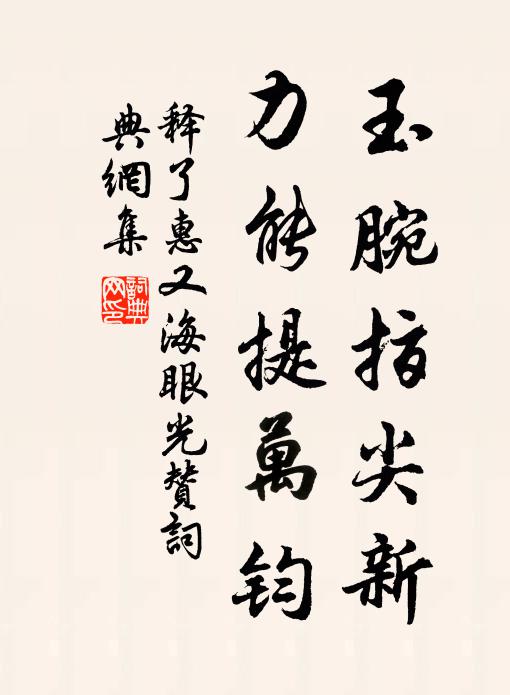 玉腕指尖新
力能提萬鈞
释了惠又海眼光赞詞
典網集
詞典
网印